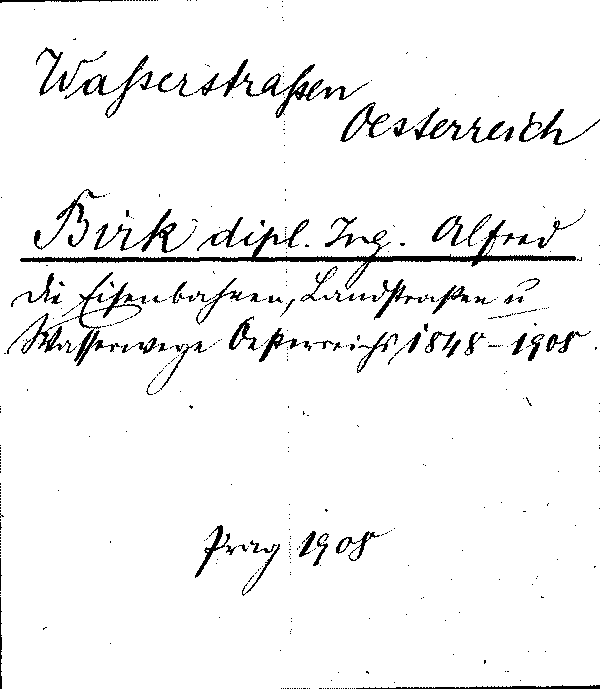 Wasserstraßen
Oesterreich
Birk dipl. Ing. Alfred
Die Eisenbahnen, Landstraßen u
Wasserwege Oesterreichs 1848-1908.
Prag 1908